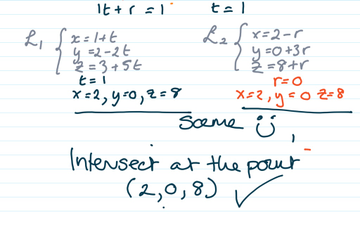 1t + r = 1 t = 1
L₁ { x = 1 + t L₂ { x = 2 - r
y = 2 - 2t y = 0 + 3r
z = 3 + 5t z = 8 + r
t = 1 r = 0
x = 2, y = 0, z = 8 x = 2, y = 0 z = 8
Same
Intersect at the point
(2, 0, 8)